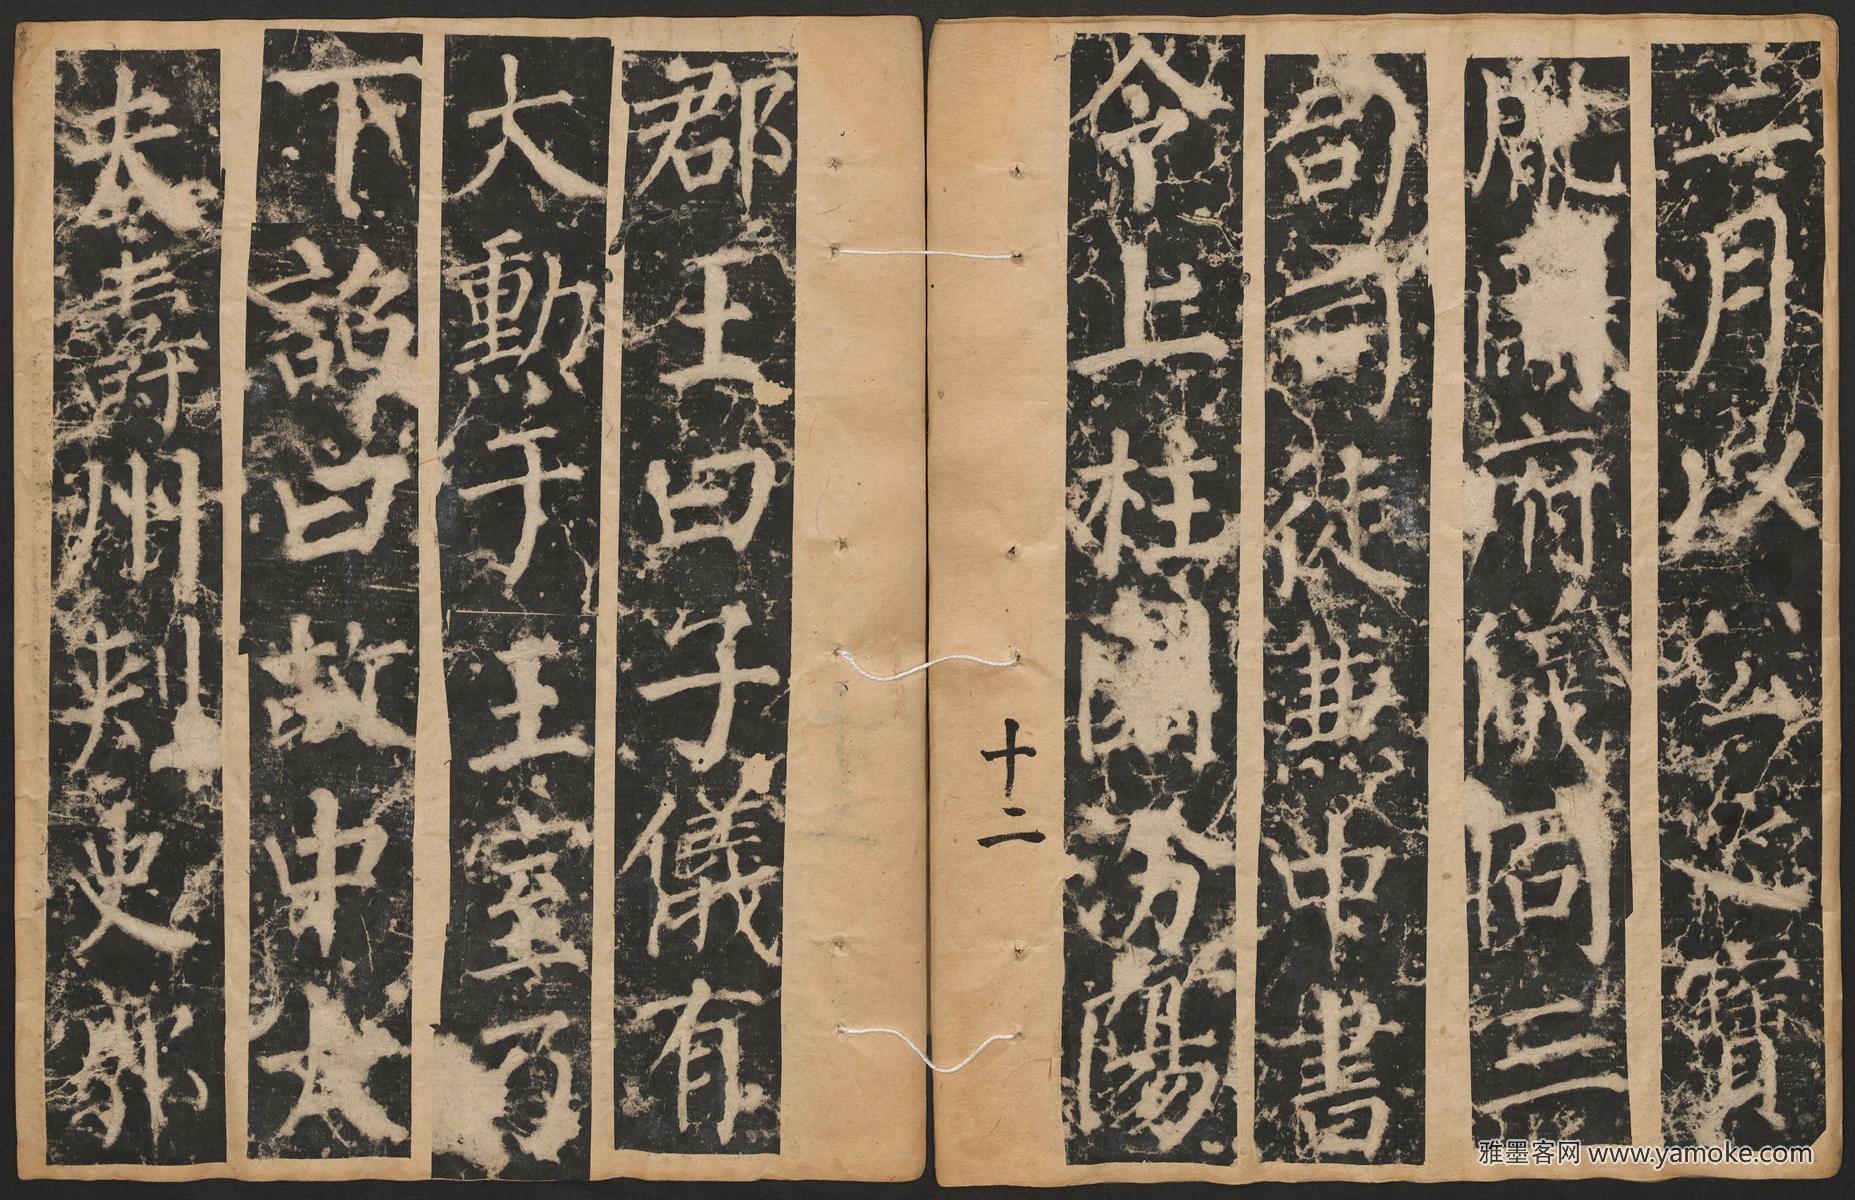 二月以公之寶
胤開府儀同三
司司徒兼中書
令上柱國汾陽
十二
郡王曰子儀有
大勳于王室乃
下詔曰故中大
夫壽州刺史郭
雅墨客网 www.yamoke.com